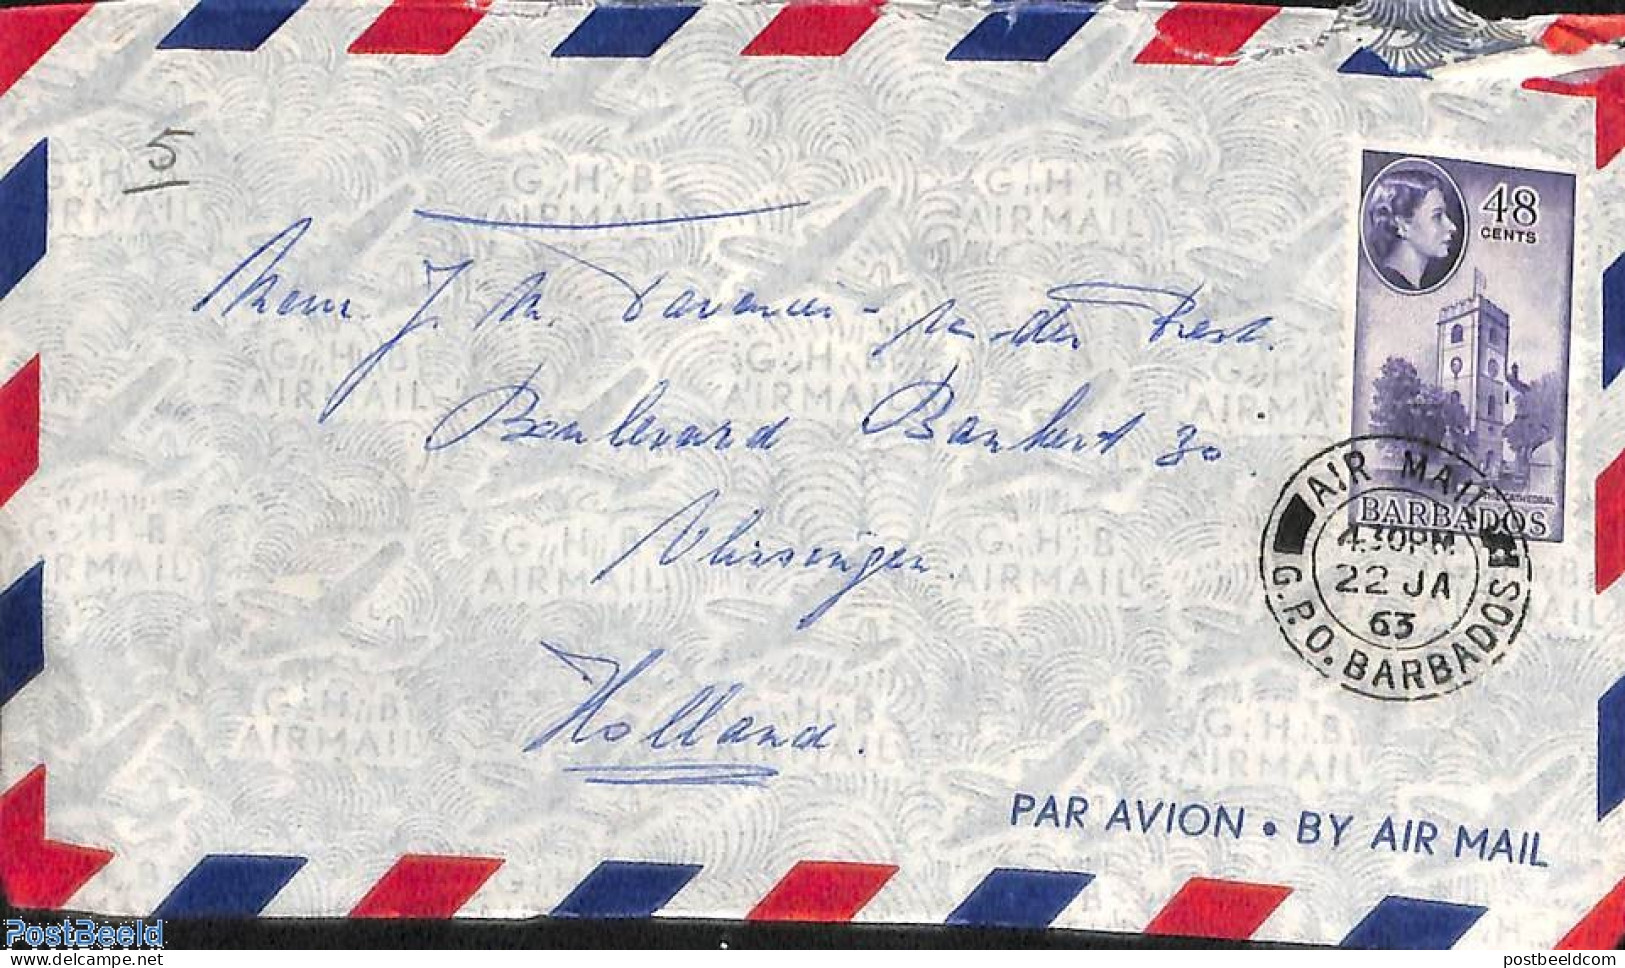 5
48
CENTS
THE CATHEDRAL
BARBADOS
AIR MAIL
4.30PM
22 JA
63
G.P.O. BARBADOS
J. M.
Boulevard Bankert 30.
Vlissingen.
Holland.
G.H.B
AIRMAIL
PAR AVION • BY AIR MAIL
PostBeeld
postbeeldcom